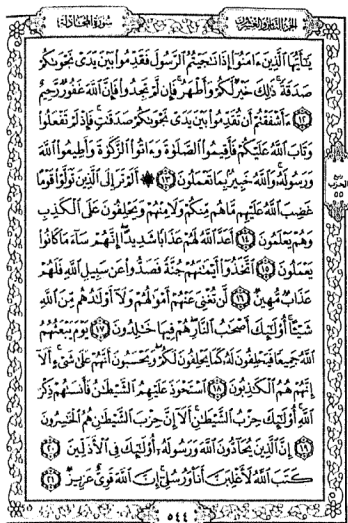 الجزء الثامن والعشرون
سورة المجادلة
يَٰٓأَيُّهَا ٱلَّذِينَ ءَامَنُوٓا۟ إِذَا نَٰجَيْتُمُ ٱلرَّسُولَ فَقَدِّمُوا۟ بَيْنَ يَدَىْ نَجْوَىٰكُمْ
صَدَقَةً ذَٰلِكَ خَيْرٌ لَّكُمْ وَأَطْهَرُ فَإِن لَّمْ تَجِدُوا۟ فَإِنَّ ٱللَّهَ غَفُورٌ رَّحِيمٌ
١٢ ءَأَشْفَقْتُمْ أَن تُقَدِّمُوا۟ بَيْنَ يَدَىْ نَجْوَىٰكُمْ صَدَقَٰتٍ فَإِذْ لَمْ تَفْعَلُوا۟
وَتَابَ ٱللَّهُ عَلَيْكُمْ فَأَقِيمُوا۟ ٱلصَّلَوٰةَ وَءَاتُوا۟ ٱلزَّكَوٰةَ وَأَطِيعُوا۟ ٱللَّهَ
وَرَسُولَهُۥ وَٱللَّهُ خَبِيرٌۢ بِمَا تَعْمَلُونَ ١٣ ۞ أَلَمْ تَرَ إِلَى ٱلَّذِينَ تَوَلَّوْا۟ قَوْمًا
غَضِبَ ٱللَّهُ عَلَيْهِم مَّا هُم مِّنكُمْ وَلَا مِنْهُمْ وَيَحْلِفُونَ عَلَى ٱلْكَذِبِ
وَهُمْ يَعْلَمُونَ ١٤ أَعَدَّ ٱللَّهُ لَهُمْ عَذَابًا شَدِيدًا إِنَّهُمْ سَآءَ مَا كَانُوا۟
يَعْمَلُونَ ١٥ ٱتَّخَذُوٓا۟ أَيْمَٰنَهُمْ جُنَّةً فَصَدُّوا۟ عَن سَبِيلِ ٱللَّهِ فَلَهُمْ
عَذَابٌ مُّهِينٌ ١٦ لَّن تُغْنِىَ عَنْهُمْ أَمْوَٰلُهُمْ وَلَآ أَوْلَٰدُهُم مِّنَ ٱللَّهِ
شَيْـًٔا أُو۟لَٰٓئِكَ أَصْحَٰبُ ٱلنَّارِ هُمْ فِيهَا خَٰلِدُونَ ١٧ يَوْمَ يَبْعَثُهُمُ
ٱللَّهُ جَمِيعًا فَيَحْلِفُونَ لَهُۥ كَمَا يَحْلِفُونَ لَكُمْ وَيَحْسَبُونَ أَنَّهُمْ عَلَىٰ شَىْءٍ أَلَآ
إِنَّهُمْ هُمُ ٱلْكَٰذِبُونَ ١٨ ٱسْتَحْوَذَ عَلَيْهِمُ ٱلشَّيْطَٰنُ فَأَنسَىٰهُمْ ذِكْرَ
ٱللَّهِ أُو۟لَٰٓئِكَ حِزْبُ ٱلشَّيْطَٰنِ أَلَآ إِنَّ حِزْبَ ٱلشَّيْطَٰنِ هُمُ ٱلْخَٰسِرُونَ
١٩ إِنَّ ٱلَّذِينَ يُحَآدُّونَ ٱللَّهَ وَرَسُولَهُۥٓ أُو۟لَٰٓئِكَ فِى ٱلْأَذَلِّينَ ٢٠
كَتَبَ ٱللَّهُ لَأَغْلِبَنَّ أَنَا۠ وَرُسُلِىٓ إِنَّ ٱللَّهَ قَوِىٌّ عَزِيزٌ ٢١
ربع
الحزب
٥٥
٥٤٤